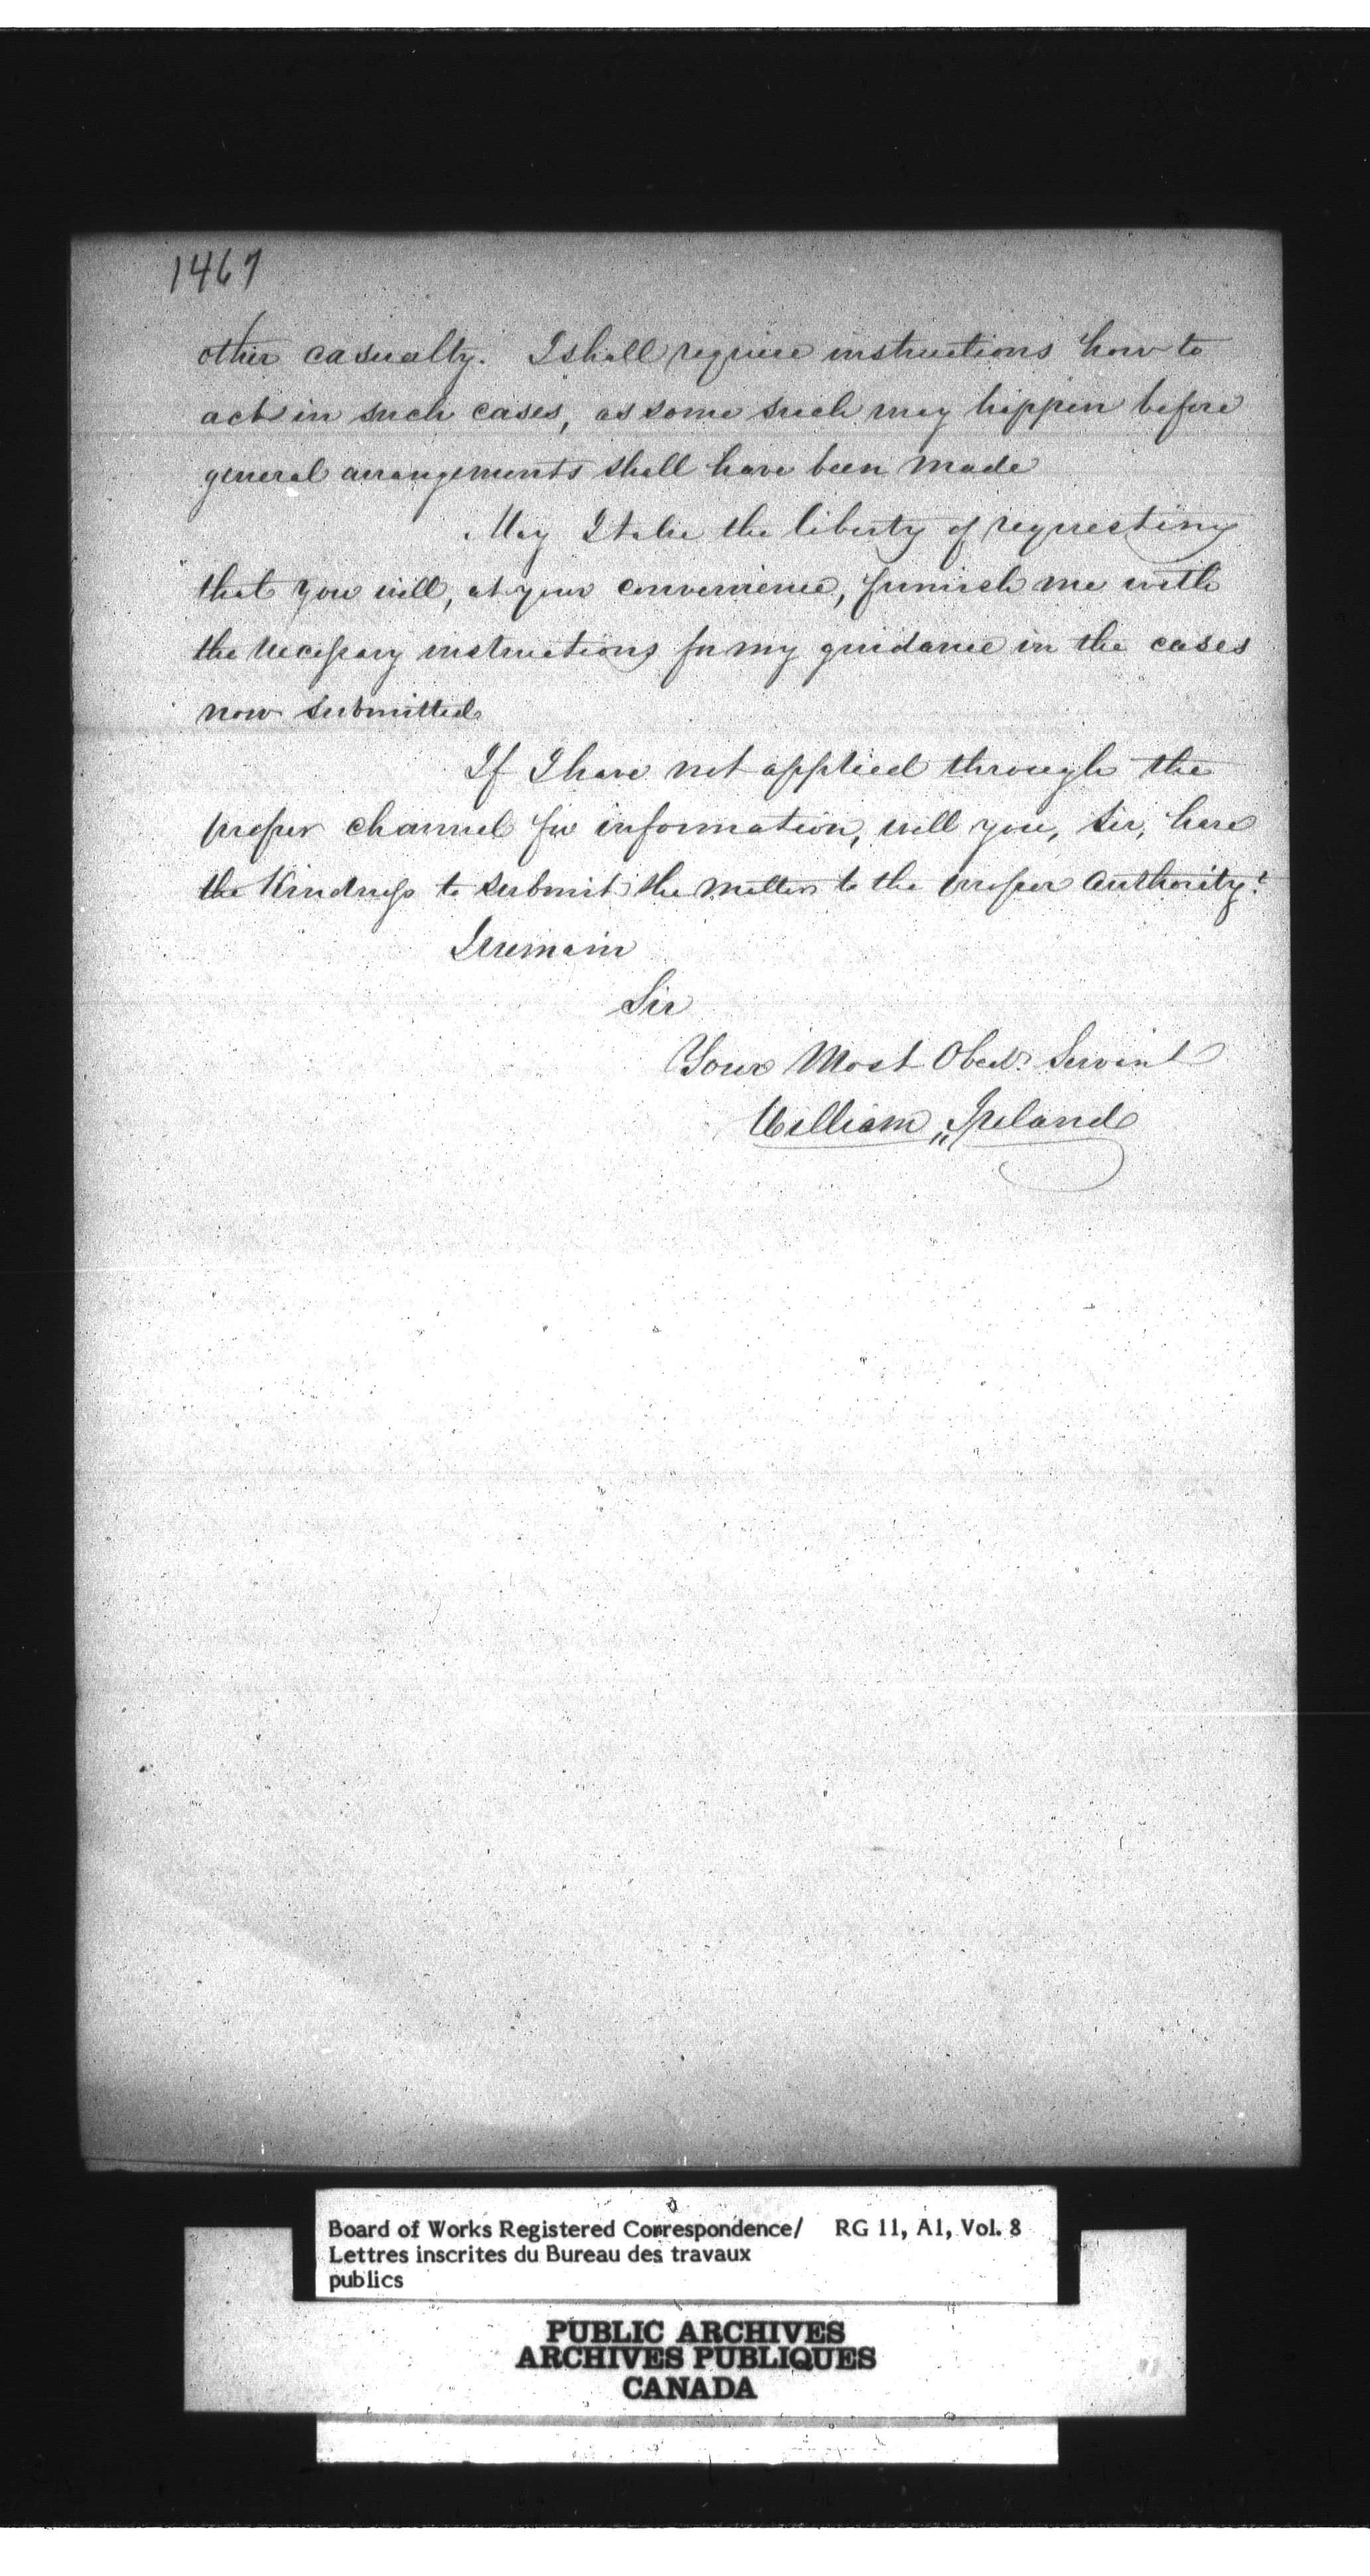 1467
other casualty. I shall require instructions how to
act in such cases, as some such may happen before
general arrangements shall have been made
May I take the liberty of requesting
that you will, at your convenience, furnish me with
the necessary instructions for my guidance in the cases
now submitted
If I have not applied through the
proper channel for information, will you, Sir, have
the Kindness to submit the matter to the proper authority?
I remain
Sir
Your Most Obedt. Servant
William Ireland
Board of Works Registered Correspondence/ RG 11, A1, Vol. 8
Lettres inscrites du Bureau des travaux
publics
PUBLIC ARCHIVES
ARCHIVES PUBLIQUES
CANADA